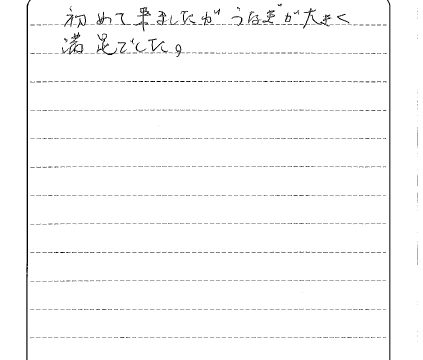 初めて来ましたがうなぎが大きく
満足でした。